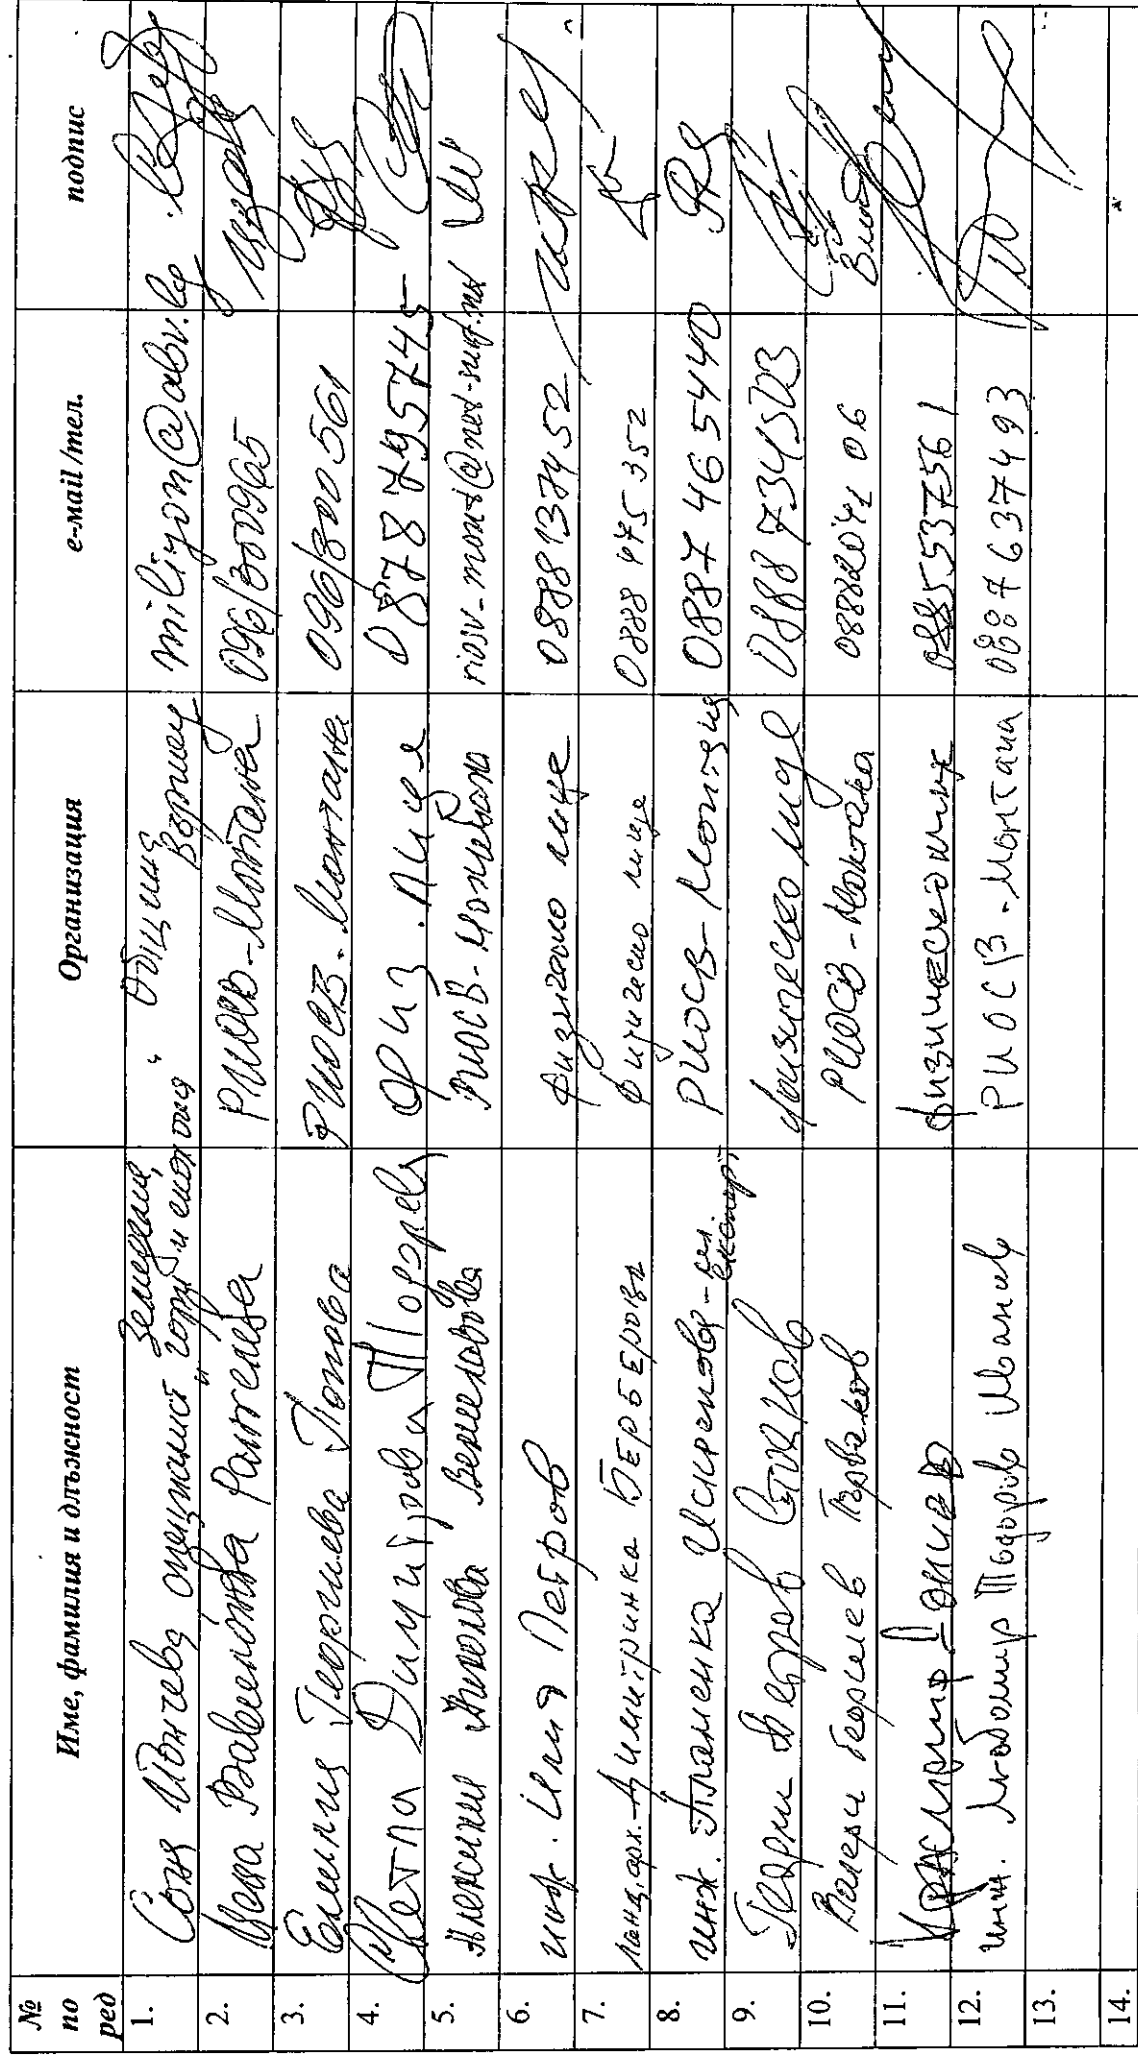 № по ред Име, фамилия и длъжност Организация e-mail /тел. подпис
1. Соня Йончева специалист "Земеделие, гори и екология" Община Вършец miliyon@abv.bg
2. Рангелова РИОСВ-Монтана 096/300965
3. Емилия Георгиева Попова РИОСВ-Монтана 096/300561
4. Светла Димитрова Физ. лице 0878795745
5. РИОСВ-Монтана riosv_mont@net-surf.net
6. инж. Илия Петров физическо лице 0888137452
7. ланд. арх. Димитринка Берберова физическо лице 0888 475 352
8. инж. Пламенка Искренова - гл. експерт РИОСВ-Монтана 0887 46 5440
9. Петров Стоянов физическо лице
10. Валери Георгиев Първанов РИОСВ-Монтана
11. физическо лице 0885537561
12. инж. Любомир Тодоров Иванов РИОСВ-Монтана 0887637493
13.
14.